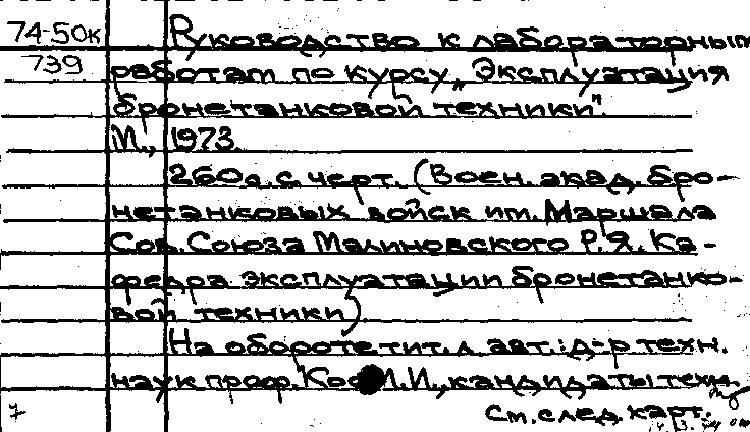 74-50к Руководство к лабораторным
739 работам по курсу „Эксплуатация
бронетанковой техники".
М., 1973.
260 с. с черт. (Воен. акад. бро-
нетанковых войск им. Маршала
Сов. Союза Малиновского Р.Я. Ка-
федра эксплуатации бронетанко-
вой техники)
На обороте тит. л. авт.: д-р техн.
наук проф. И., кандидаты техн.
См. след. карт.
7